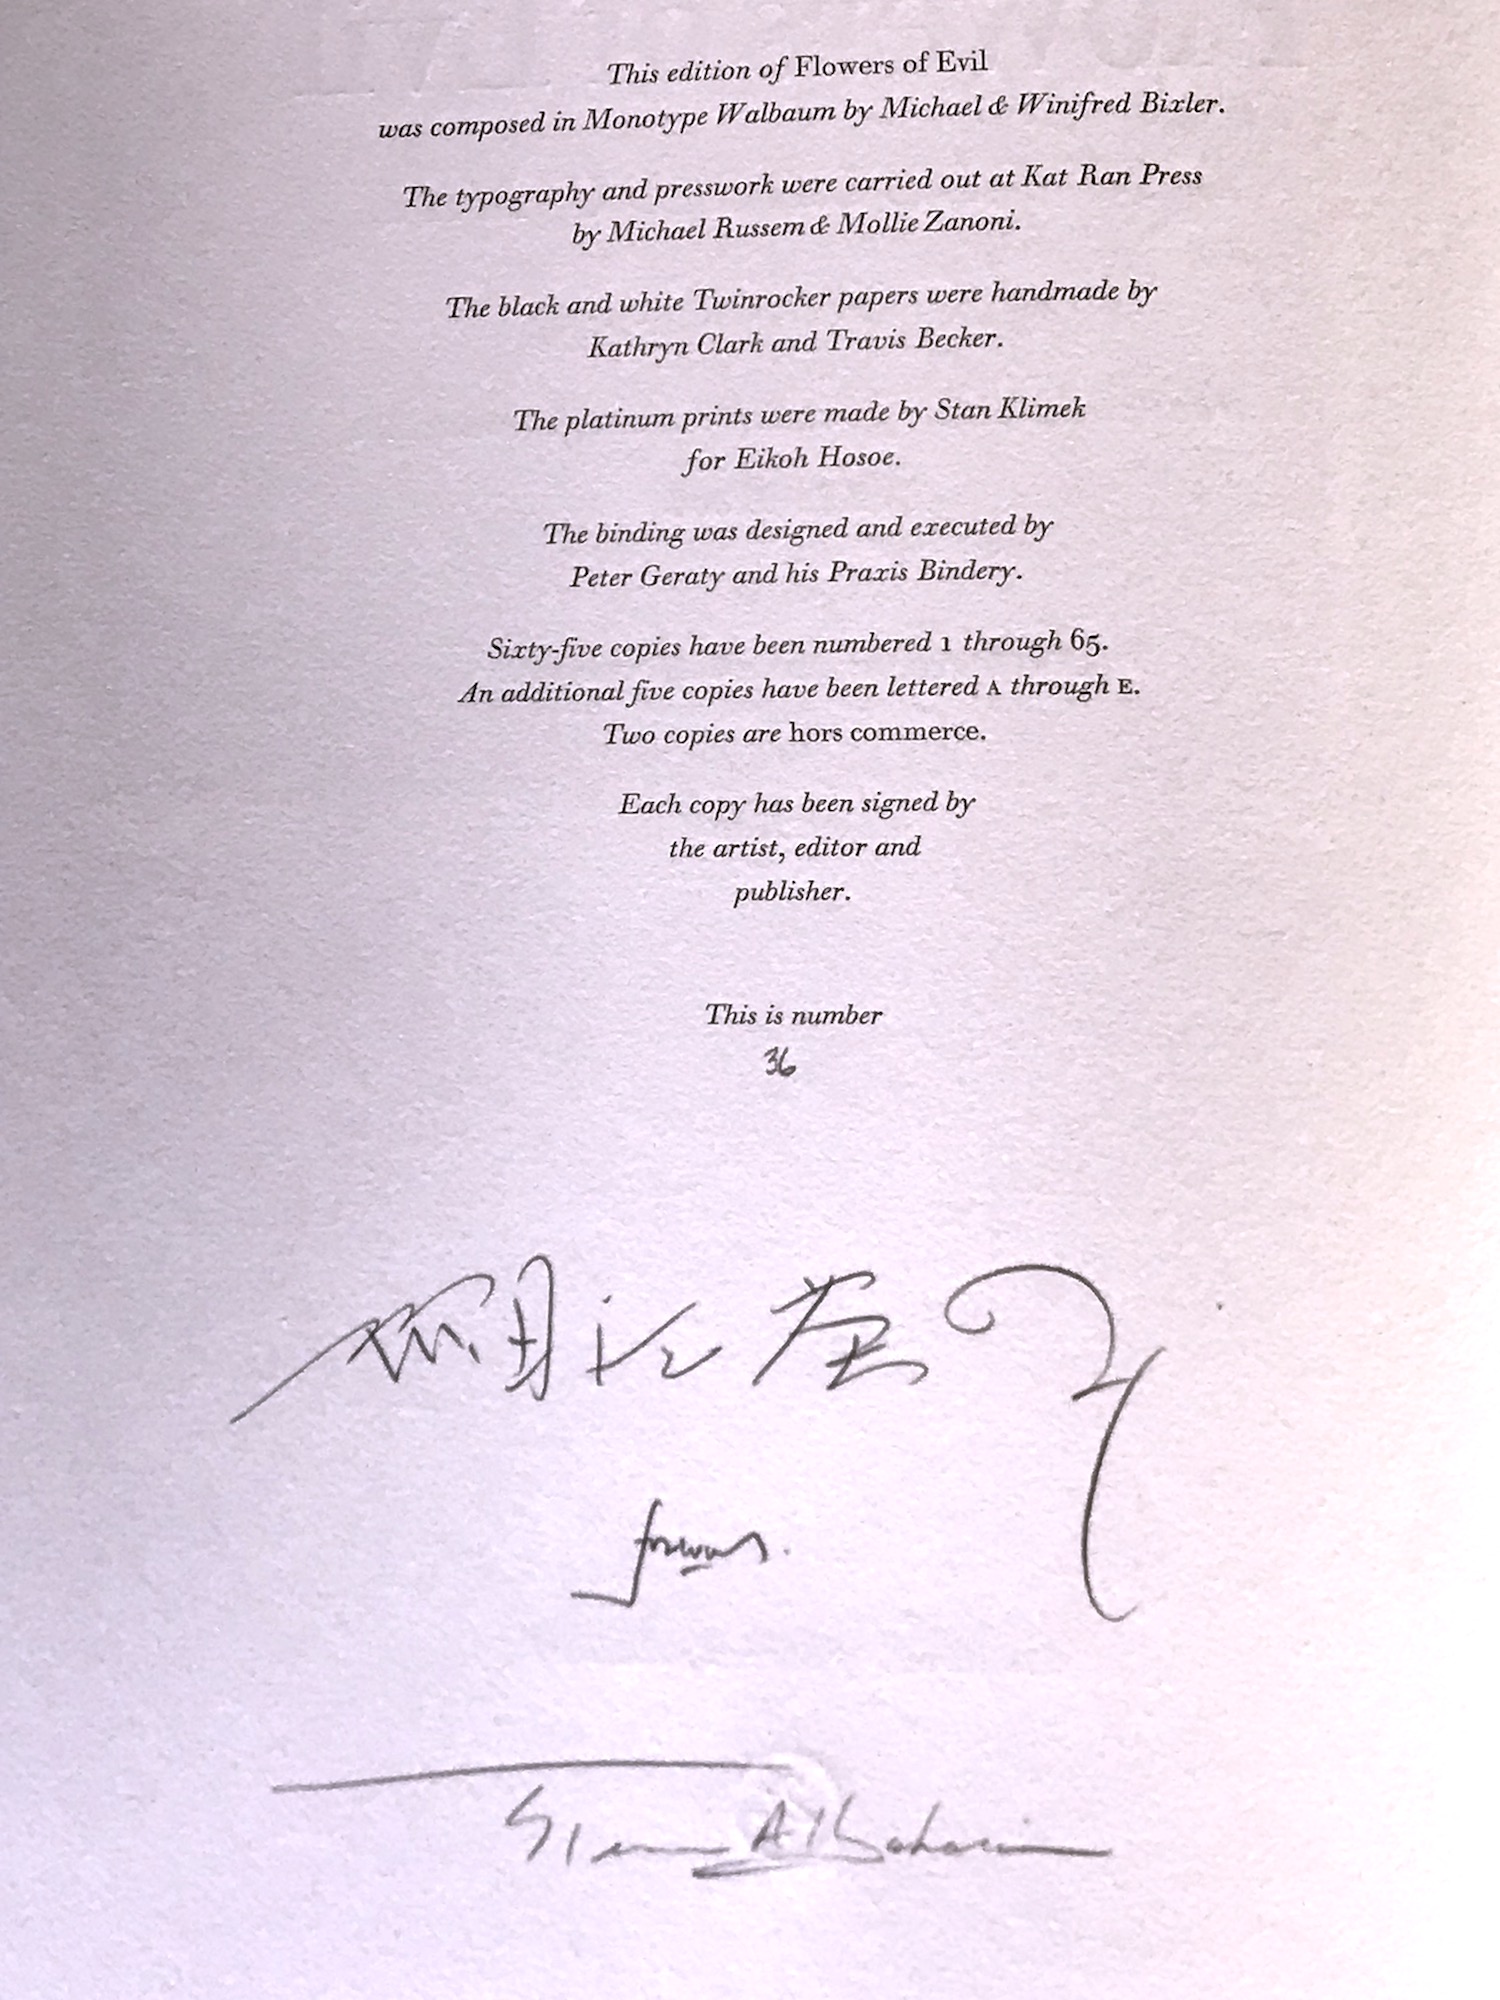 This edition of Flowers of Evil
was composed in Monotype Walbaum by Michael & Winifred Bixler.
The typography and presswork were carried out at Kat Ran Press
by Michael Russem & Mollie Zanoni.
The black and white Twinrocker papers were handmade by
Kathryn Clark and Travis Becker.
The platinum prints were made by Stan Klimek
for Eikoh Hosoe.
The binding was designed and executed by
Peter Geraty and his Praxis Bindery.
Sixty-five copies have been numbered 1 through 65.
An additional five copies have been lettered A through E.
Two copies are hors commerce.
Each copy has been signed by
the artist, editor and
publisher.
This is number
36
細江英公